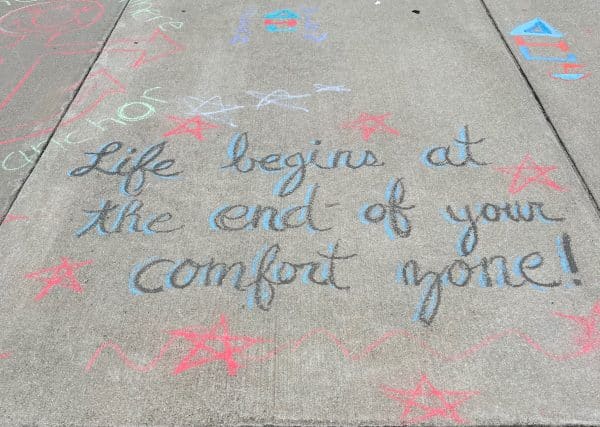 here
anchor
Life begins at
the end of your
comfort zone!